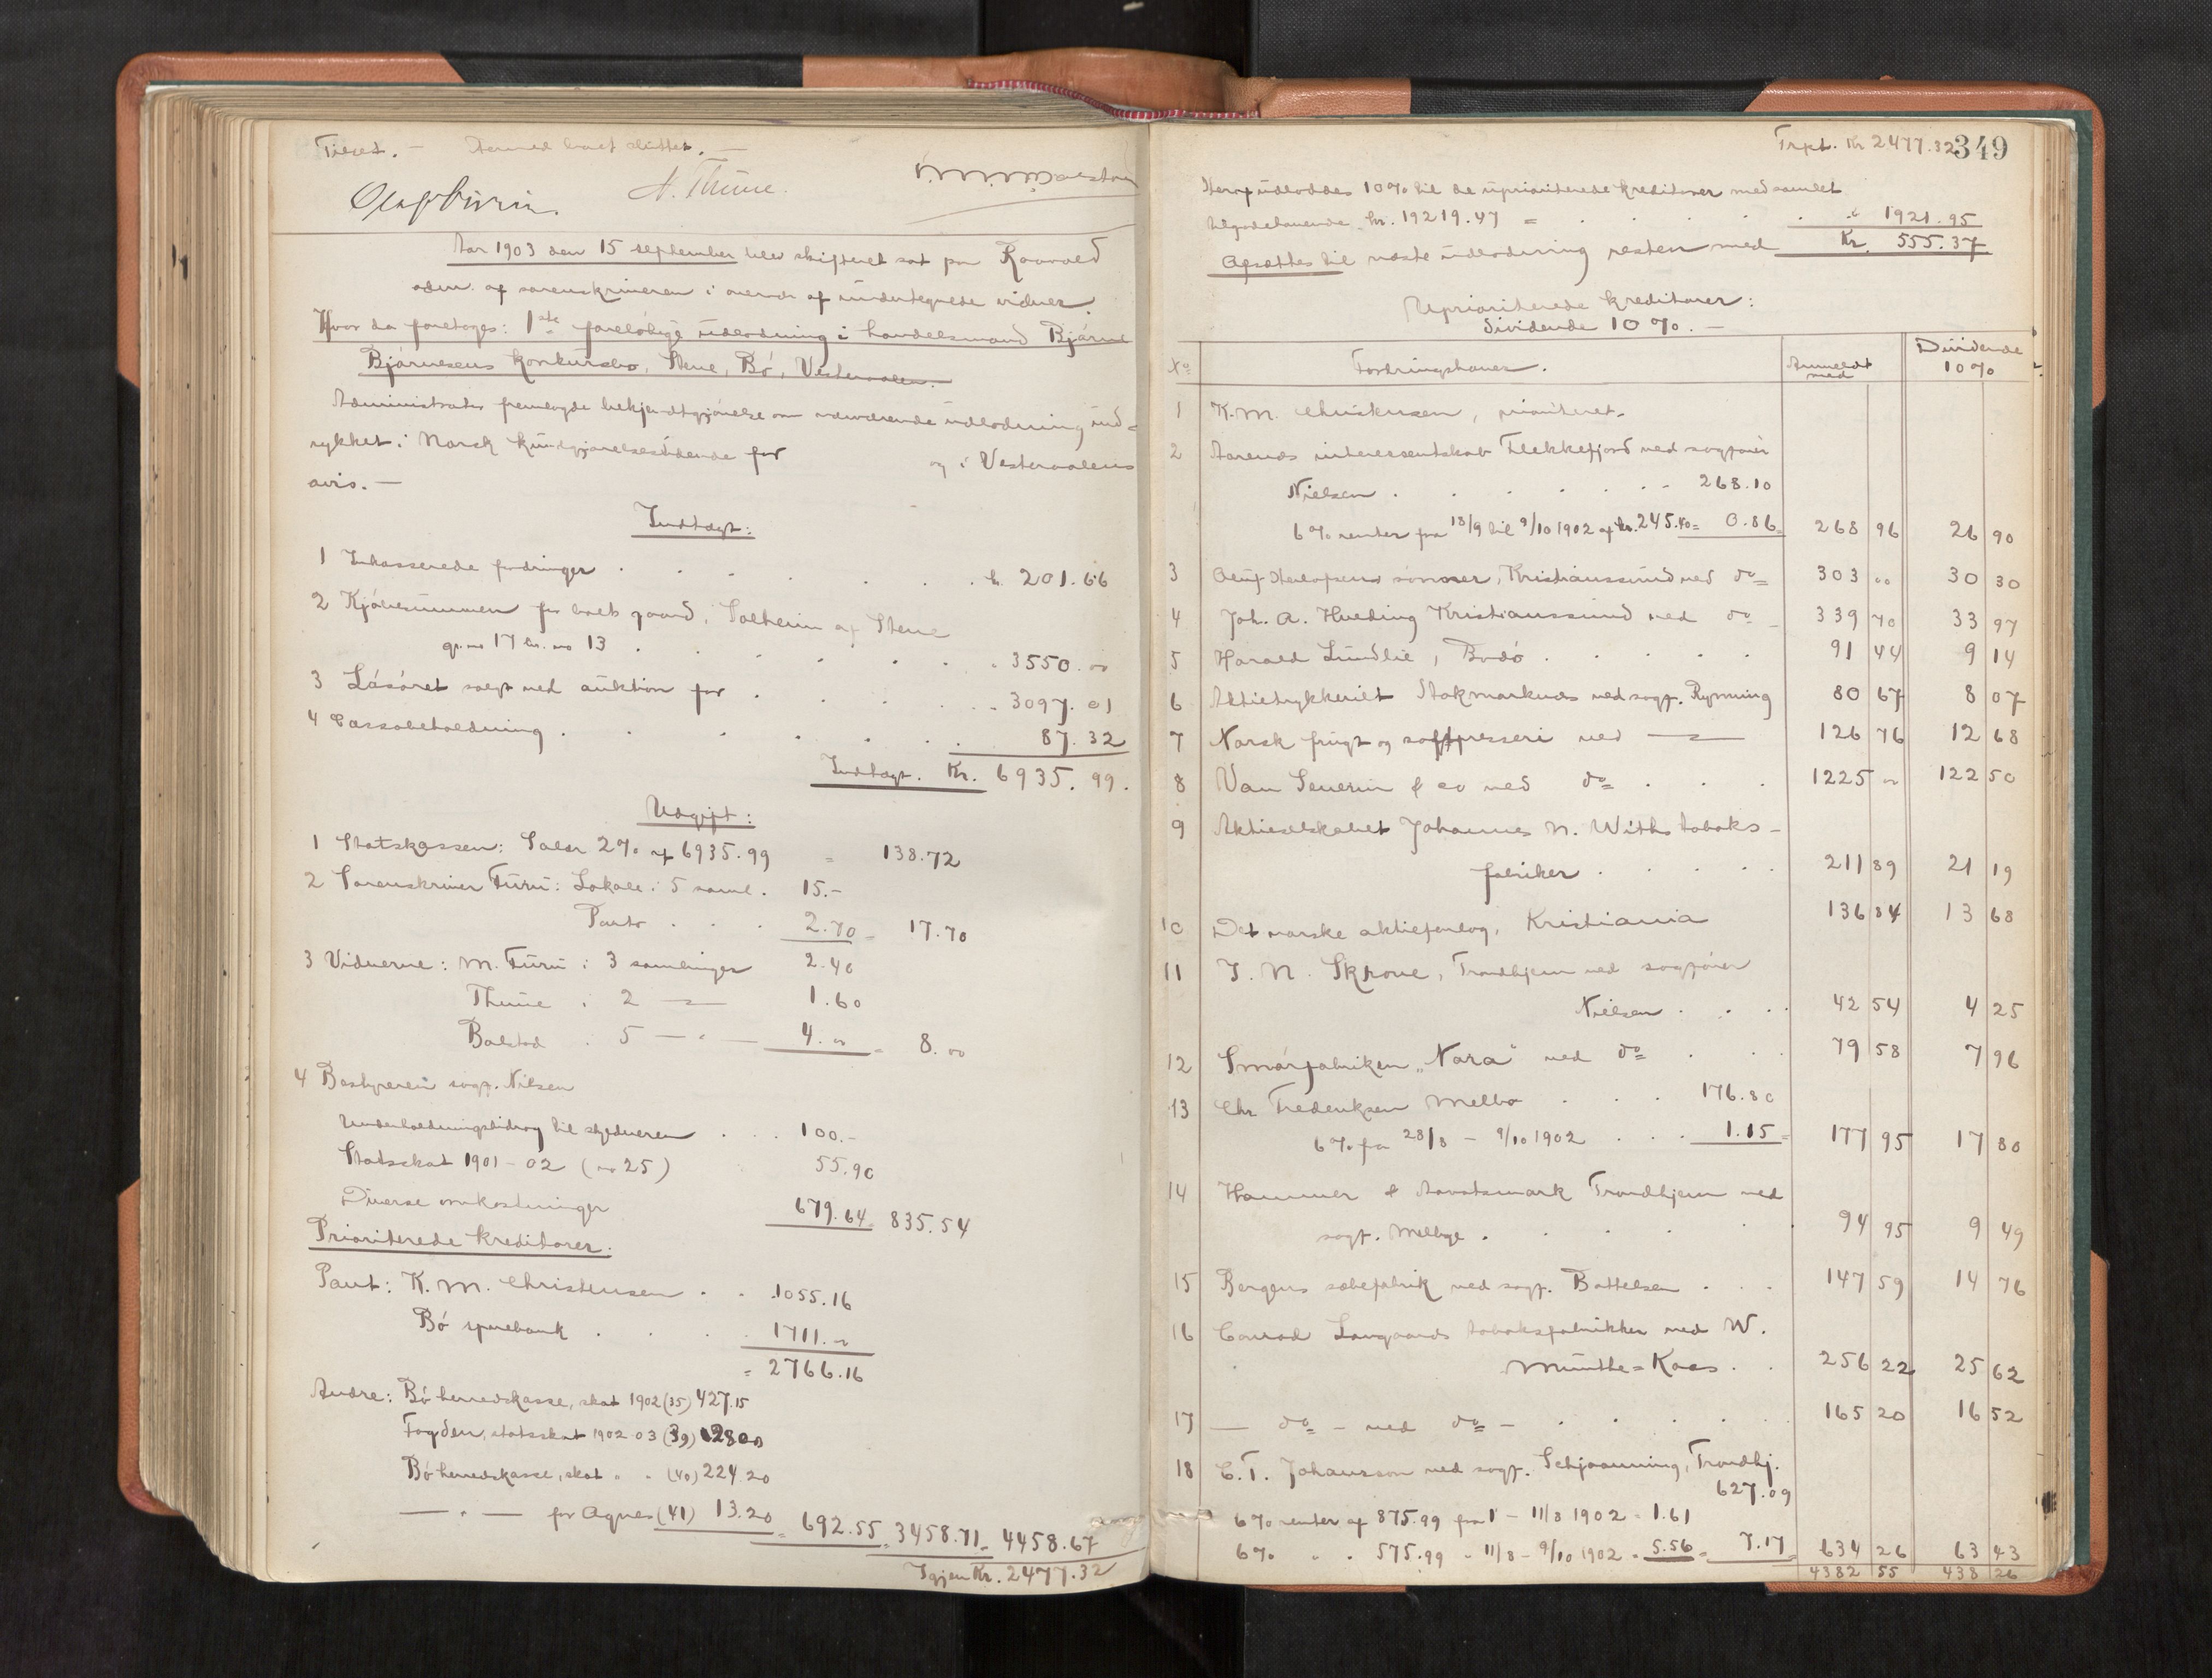 Tilset. — Dermed boet sluttet. —
N. Thune.
Aar 1903 den 15 september blev skifteret sat paa Raavold
adm. af sorenskriveren i overvær af undertegnede vidner.
Hvor da foretoges: 1ste foreløbige udlodning i handelsmand Bjarne
Bjørnsens konkursbo, Stene, Bø, Vesteraalen. —
Administrator fremlagde bekjendtgjørelse om nærværende udlodning ind-
rykket i Norsk kundgjørelsestidende for og i Vesteraalens
avis. —
Indtægt:
1 Inkasserede fordringer . . . . . kr. 201.66
2 Kjøbesummen for boets gaard, Solheim af Stene
gr. no 17 br. no 13 . . . . . 3550.00
3 Løsøret solgt ved auktion for . . . . 3097.01
4 Cassabeholdning . . . . . 87.32
Indtægt. Kr. 6935.99.
Udgift:
1 Statskassen: Salær 2% af 6935.99 = 138.72
2 Sorenskriver Furu: Lokale i 5 saml. 15.-
Porto . . . 2.70 = 17.70
3 Vidnerne: M. Furu i 3 samlinger 2.40
Thune i 2 — " — 1.60
Bolstad . 5 — " — 4.00 = 8.00
4 Bestyreren sagf. Nilsen
Underholdningsbidrag til skyldneren . . 100.-
Statsskat 1901-02 (no 25) 55.90
Diverse omkostninger 679.64 = 835.54
Prioriterede kreditorer.
Pant: K. M. Christensen . . 1055.16
Bø sparebank . . . . 1711.00
= 2766.16
Andre: Bø herredskasse, skat 1902 (35) 427.15
Fogden, statsskat 1902-03 (39) 28.00
Bø herredskasse, skat " " (40) 224.20
— " — for Agnes (41) 13.20 = 692.55 = 3458.71 = 4458.67
Igjen Kr. 2477.32
Trpt. Kr 2477.32 349
Herav udloddes 10% til de uprioriterede kreditorer med samlet
tilgodehavende kr. 19219.47 = . . . . " 1921.95
Afsættes til næste udlodning resten med Kr. 555.37
Uprioriterede kreditorer:
Dividende 10%. —
No Fordringshaver. Anmeldt med Dividende 10%
1 K. M. Christensen, prioriteret.
2 Aarenes interessentskab Flekkefjord ved sagfører
Nielsen . . . . . . 268.10
6% renter fra 18/9 til 9/10 1902 af kr. 245.40 = 0.86 = 268 96 26 90
3 Oluf Herlofsens sønner, Kristianssund ved do 303 00 30 30
4 Joh. A. Hveding Kristianssund ved do 339 70 33 97
5 Harald Lundlie, Bodø . . . . . 91 44 9 14
6 Aktietrykkeriet Stokmarknæs ved sagf. Rynning 80 67 8 07
7 Norsk frugt og saftpresseri ved — " — 126 76 12 68
8 Van Severin & co ved do . . . 1225 00 122 50
9 Aktieselskabet Johannes N. Withs tobaks-
fabriker . . . . . 211 89 21 19
10 Det norske aktieforlag, Kristiania 136 84 13 68
11 I. N. Skrove, Trondhjem ved sagfører
Nielsen . . . 42 54 4 25
12 Smørfabriken "Nora" ved do . . . 79 58 7 96
13 Chr. Frederiksen Melbo . . . 176.80
6% fra 28/8 - 9/10 1902 . . . 1.15 = 177 95 17 80
14 Hammer & Aavatsmark Trondhjem ved
sagf. Melbye . . . . . 94 95 9 49
15 Bergens sæbefabrik ved sagf. Bottelsen . . . 147 59 14 76
16 Conrad Langaards tobaksfabrikker ved W.
Munthe=Kaas . . 256 22 25 62
17 — do — ved do — . . . . . 165 20 16 52
18 C. T. Johansson ved sagf. Schjaanning, Trondhj.
627.09
6% renter af 875.99 fra 1 - 11/8 1902 = 1.61
6% " " 575.99 " 11/8 - 9/10 1902 = 5.56 = 7.17 = 634 26 63 43
4382 55 438 26